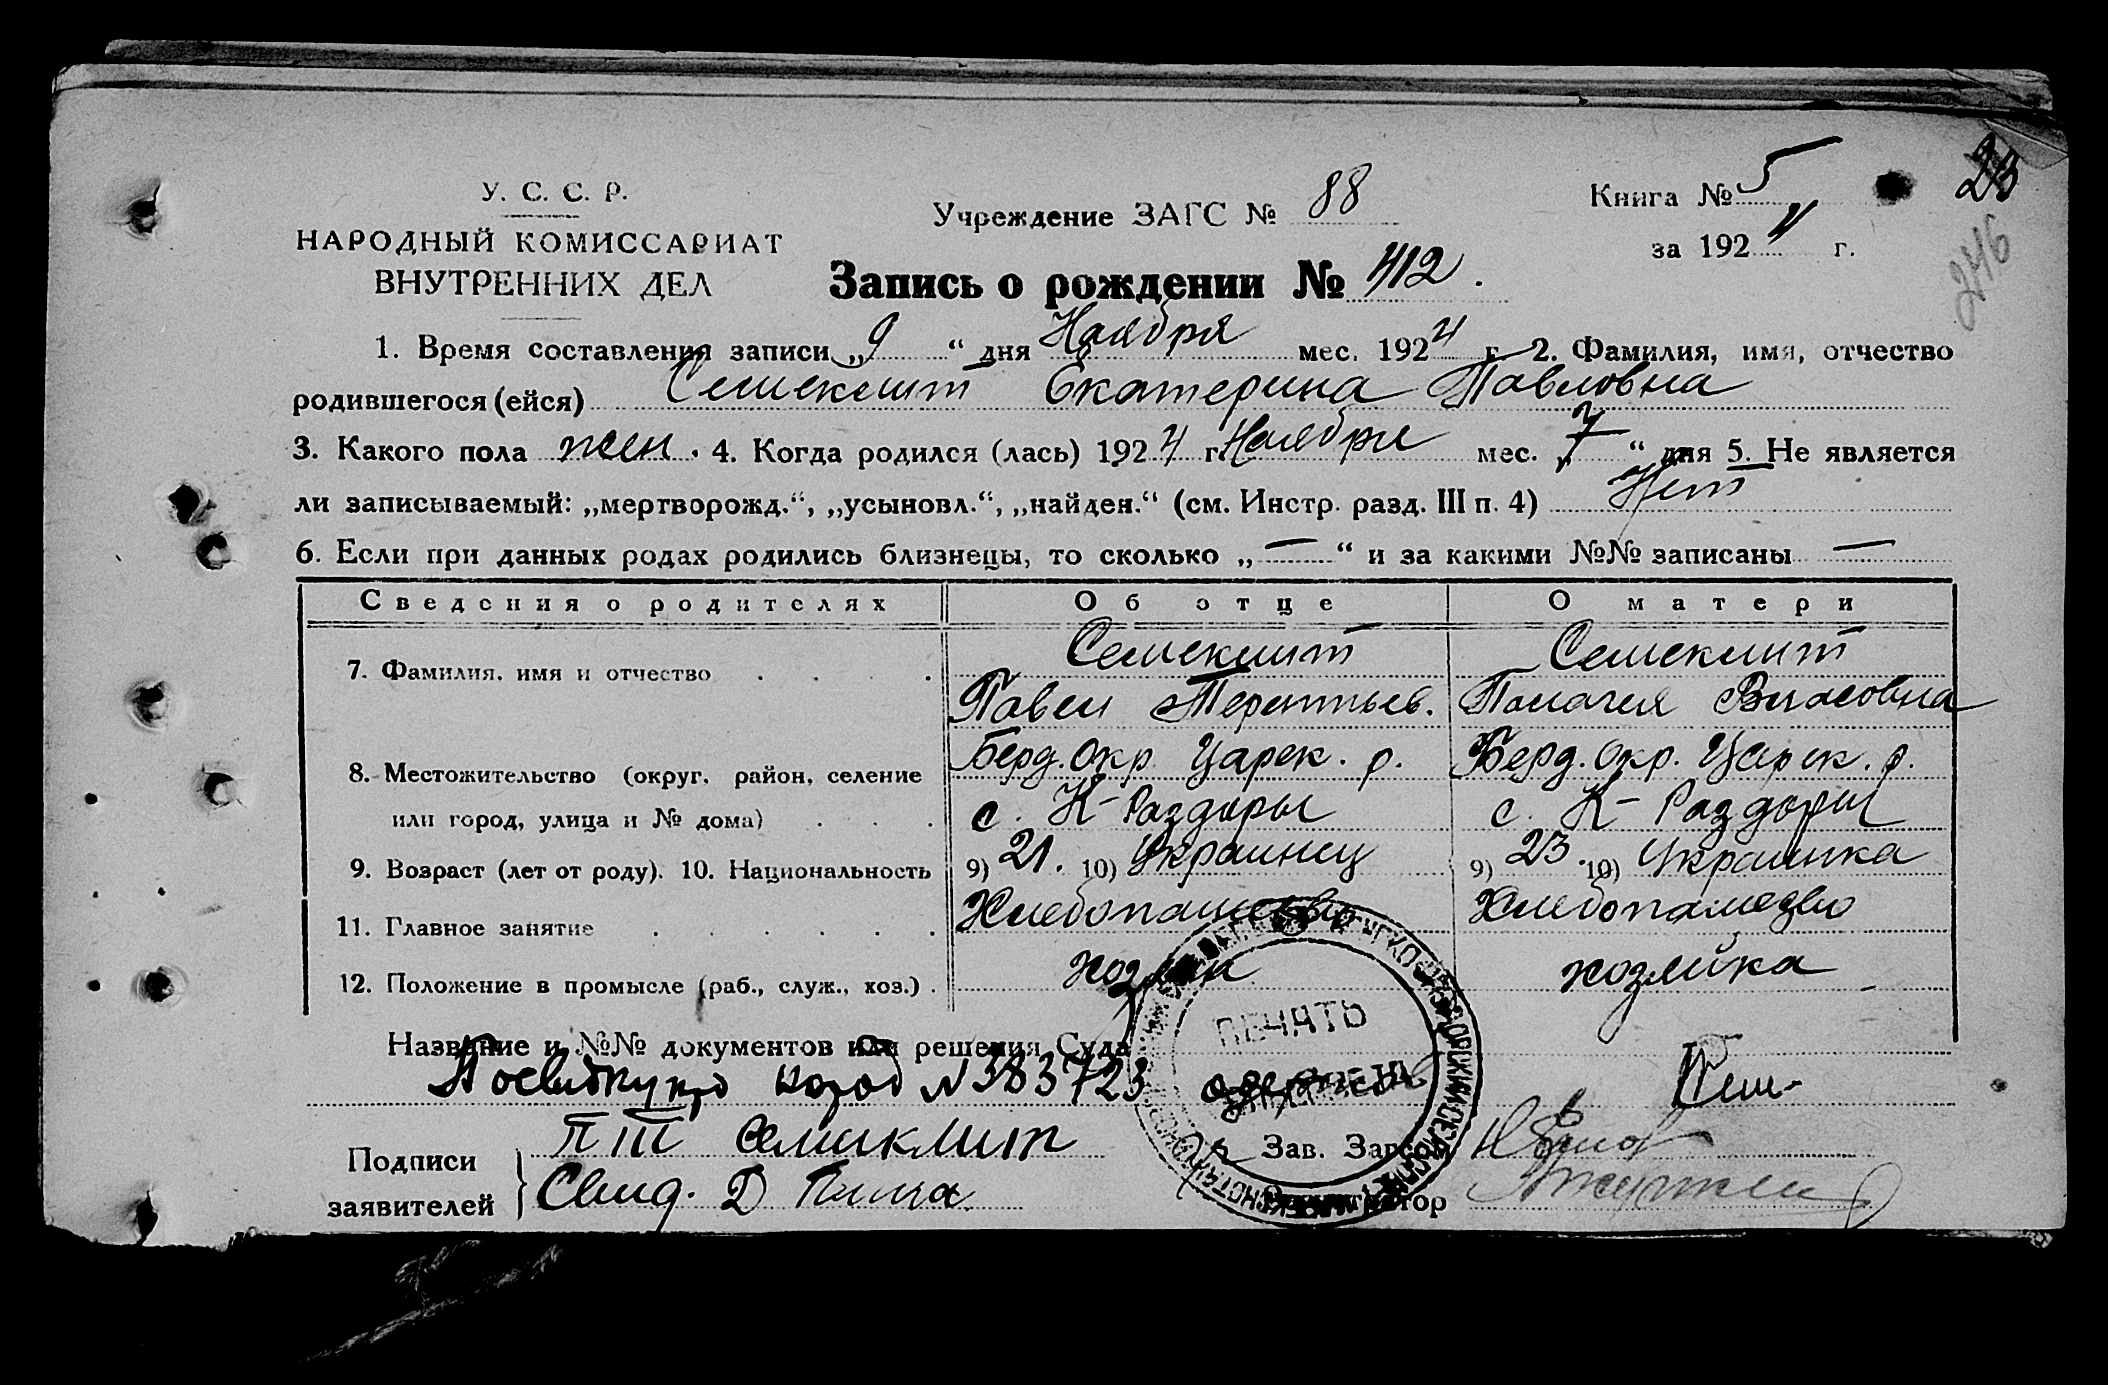 У. С. С. Р.
НАРОДНЫЙ КОМИССАРИАТ
ВНУТРЕННИХ ДЕЛ
Учреждение ЗАГС № 88
Книга № 5
за 1924 г.
23
246
Запись о рождении № 412.
1. Время составления записи „9“ дня Ноября мес. 1924 г. 2. Фамилия, имя, отчество
родившегося (ейся) Семеклит Екатерина Павловна
3. Какого пола жен. 4. Когда родился (лась) 1924 г. Ноября мес. „7“ дня 5. Не является
ли записываемый: „мертворожд.“, „усыновл.“, „найден.“ (см. Инстр. разд. III п. 4) Нет
6. Если при данных родах родились близнецы, то сколько „—“ и за какими №№ записаны —
Сведения о родителях Об отце О матери
7. Фамилия, имя и отчество Семеклит Семеклит
Павел Терентьев. Палагея Власовна
8. Местожительство (округ, район, селение Берд. Окр. Царек. р. Берд. Окр. Царек. р.
или город, улица и № дома) с. К-Раздоры с. К-Раздоры
9. Возраст (лет от роду). 10. Национальность 9) 21. 10) Украинец 9) 23. 10) Украинка
11. Главное занятие Хлебопашество Хлебопашество
12. Положение в промысле (раб., служ., хоз.) хозяин хозяйка
Название и №№ документов или решения Суда
№ 383723
Подписи
заявителей
ПТ Семиклит
Свид. Д
Зав. Загсом
ПЕЧАТЬ